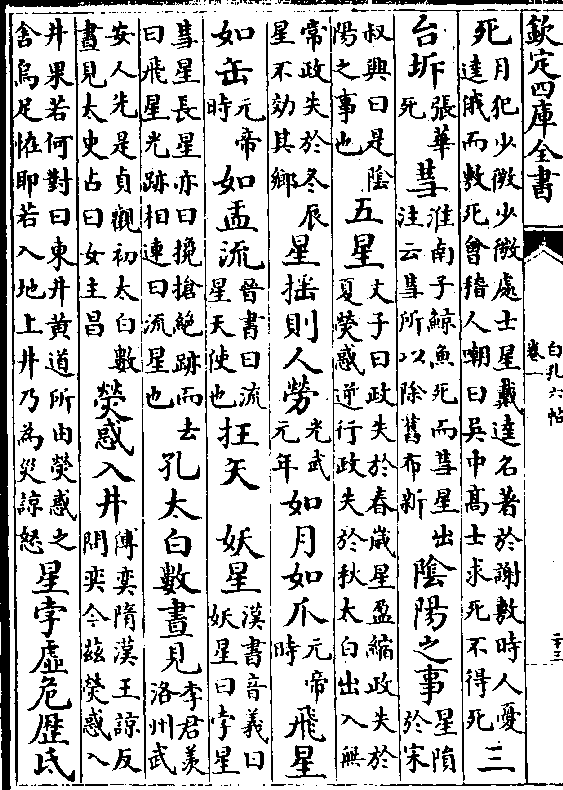 欽定四庫全書
白孔六帖
卷一
二十三
死月犯少微少微處士星戴達名著於謝敷時人憂達賊而敷死會稽人嘲曰吳中高士求死不得死三
台坼張華死彗淮南子鯨魚死而彗星出注云彗所以除舊布新陰陽之事星隕於宋
叔興曰是陰陽之事也五星文子曰政失於春歲星盈縮政失於夏熒惑逆行政失於秋太白出入無
常政失於冬辰星不効其鄉星揺則人勞光武元年如月如爪元帝時飛星
如缶元帝時如盂流晉書曰流星天使也枉矢 妖星漢書音義曰妖星曰孛星
彗星長星亦曰攙搶絶跡而去曰飛星光跡相連曰流星也孔太白數晝見李君羨洛州武
安人先是貞觀初太白數晝見太史占曰女主昌熒惑入井傅奕隋漢王諒反問奕今茲熒惑入
井果若何對曰東井黄道所由熒惑之舍烏足怪即若入地上井乃為災諒怒星孛虛危歴氐